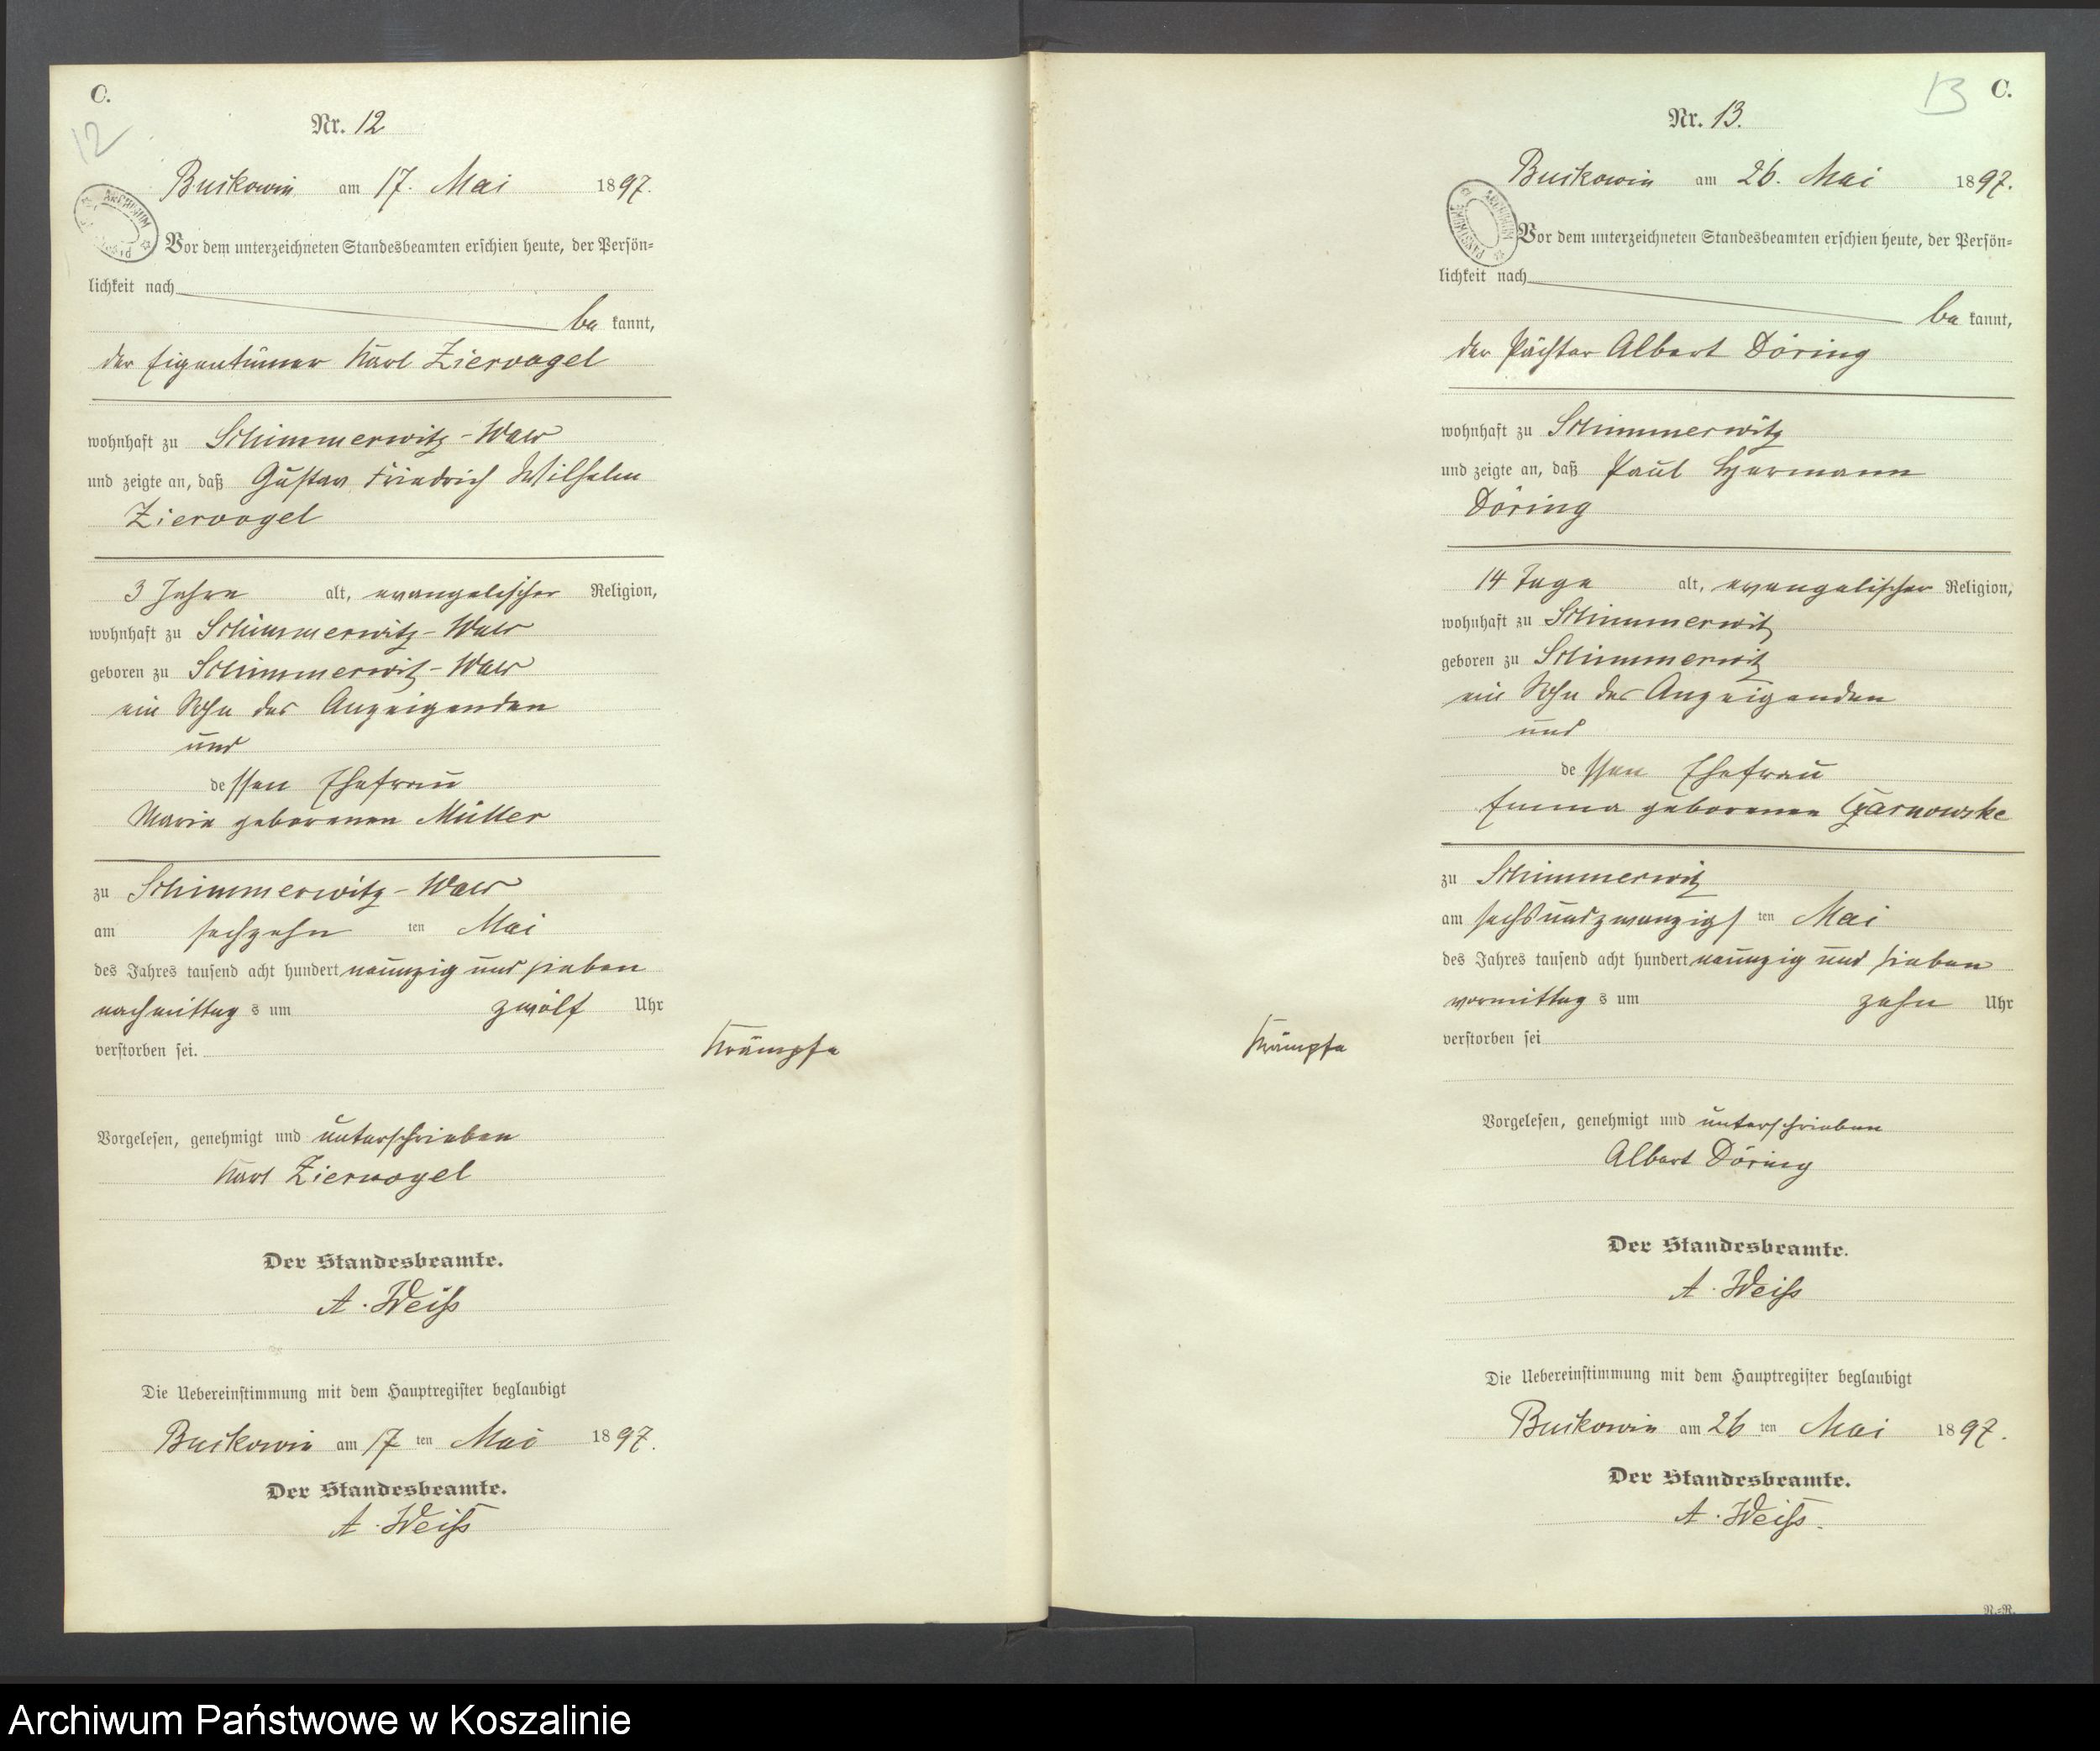 C.
12
Nr. 12
Buckowin am 17. Mai 1897.
Vor dem unterzeichneten Standesbeamten erschien heute, der Persön=
lichkeit nach
be kannt,
der Eigentümer Karl Ziervogel
wohnhaft zu Schimmerwitz-Wald
und zeigte an, daß Gustav Friedrich Wilhelm
Ziervogel
3 Jahre alt, evangelischer Religion,
wohnhaft zu Schimmerwitz-Wald
geboren zu Schimmerwitz-Wald
ein Sohn des Anzeigenden
und
dessen Ehefrau
Marie geborenen Müller
zu Schimmerwitz-Wald
am sechzehn ten Mai
des Jahres tausend acht hundert neunzig und sieben
nachmittag s um zwölf Uhr
verstorben sei.
Krämpfe
Vorgelesen, genehmigt und unterschrieben
Karl Ziervogel
Der Standesbeamte.
A. Weiß
Die Uebereinstimmung mit dem Hauptregister beglaubigt
Buckowin am 17 ten Mai 1897.
Der Standesbeamte.
A. Weiß
13
C.
Nr. 13.
Buckowin am 26. Mai 1897.
ARCHIWUM PAŃSTWOWE
Vor dem unterzeichneten Standesbeamten erschien heute, der Persön=
lichkeit nach
be kannt,
der Pächter Albert Döring
wohnhaft zu Schimmerwitz
und zeigte an, daß Paul Hermann
Döring
14 Tage alt, evangelischer Religion,
wohnhaft zu Schimmerwitz
geboren zu Schimmerwitz
ein Sohn des Anzeigenden
und
dessen Ehefrau
Emma geborenen
zu Schimmerwitz
am sechsundzwanzigs ten Mai
des Jahres tausend acht hundert neunzig und sieben
vormittag s um zehn Uhr
verstorben sei
Krämpfe
Vorgelesen, genehmigt und unterschrieben
Albert Döring
Der Standesbeamte.
A. Weiß
Die Uebereinstimmung mit dem Hauptregister beglaubigt
Buckowin am 26 ten Mai 1897.
Der Standesbeamte.
A. Weiß.
R.=R.
Archiwum Państwowe w Koszalinie